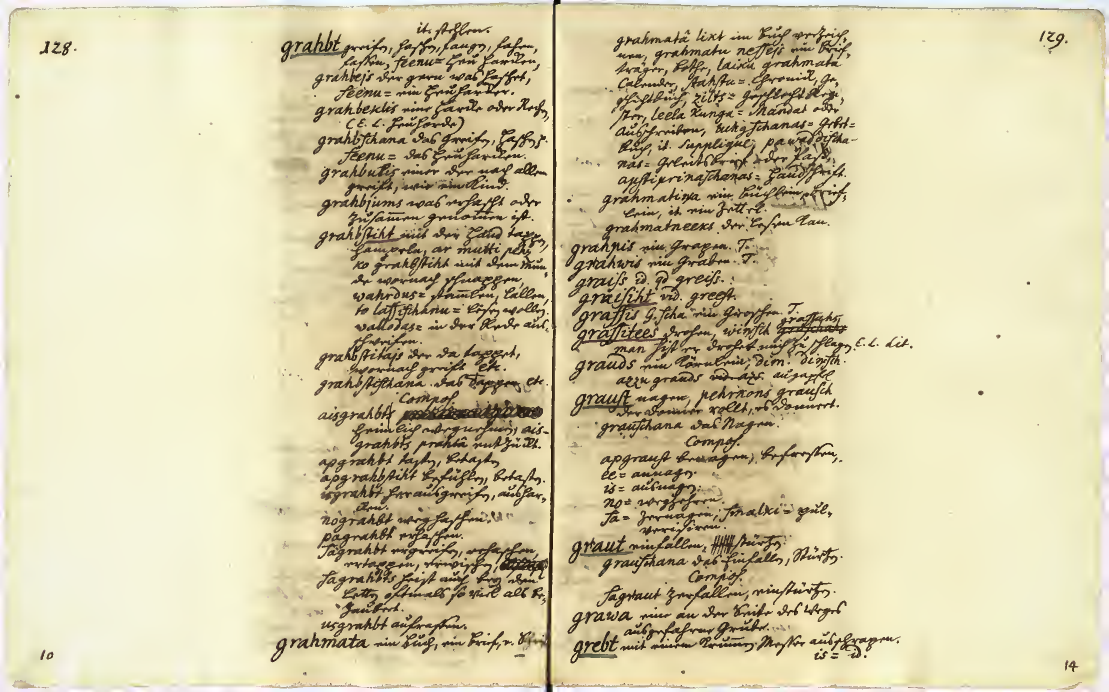 128.
it. stehlen.
grahbt greifen, haschen, fangen, fahen,
fassen, seenu= Heu harcken,
grahbejs der gern was haschet,
seenu= ein Heuharcker.
grahbeklis eine Harcke oder Rechen,
(E. L. Heuhorde)
grahbschana das Greifen, Haschen.
seenu= das Heuharcken.
grahbulis einer der nach allem
greift, wie ein Kind.
grahbjums was erhascht oder
zusammen genommen ist.
grahbstiht mit der Hand tappen,
hampeln, ar mutti pehz
ko grahbstiht mit dem Mun
de wornach schnappen,
wahrdus= stamlen, lallen,
to lassischanu= lesen wollen.
wallodas= in der Rede aus-
schweifen.
grahbstitajs der da tappet,
wornach greift etc.
grahbstischana das Tappen etc.
Compos.
aisgrahbt
heimlich wegnehmen, ais-
grahbts prahtâ entzückt.
apgrahbt tasten, betasten
apgrahbstiht befühlen, betasten.
isgrahbt herausgreifen, aushar-
cken.
nograhbt weghaschen.
pagrahbt erhaschen.
sagrahbt ergreifen, erhaschen,
ertappen, erwischen,
sagrahbts heist auch bey den
Letten oftmals so viel als be-
zaubert.
usgrahbt aufraffen.
grahmata ein Buch, ein Brief,
10
129.
grahmatâ likt im Buch verzeich-
nen, grahmatu nessejs ein Brief-
träger, Bothe, laiku grahmata
Calender, stahstu= Chronick, Ge-
schichtbuch, zilts= Geschlecht Regi-
ster, leela kunga= Mandat oder
Ausschreiben, luhgschanas= Gebet=
Buch, it. Supplique, pawaddischa-
nas= Geleitsbrief oder Pass,
apstiprinaschanas= Handschrift.
grahmatina ein Büchlein, Brief-
lein, it. ein Zettel.
grahmatneeks der lesen kan.
grahpis ein Grapen. T.
grahwis ein Graben. T.
graiss id. qd greiss.
graisiht vid. greest.
grassis G. scha ein Groschen. T.
grassitees drohen, winsch grassahs
man sist er drohet mich zu schlagen E. L. Lit.
grauds ein Körnlein, dim. dinsch.
azzu grauds vid. azs. augapfel
graust nagen, pehrkons grausch
der Donner rollt, es donnert.
grauschana das Nagen.
Compos.
apgraust benagen, befressen,
ee= annagen.
is= ausnagen.
no= wegzehren.
sa= zernagen, smalki= pul-
verisiren.
graut einfallen, stürzen.
grauschana das Einfallen, Stürzen.
Compos.
sagraut zerfallen, einstürzen.
grawa eine an der Seite des Weges
ausgefahrne Grube.
grebt mit einem krummen Messer ausschrapen.
is= id.
14